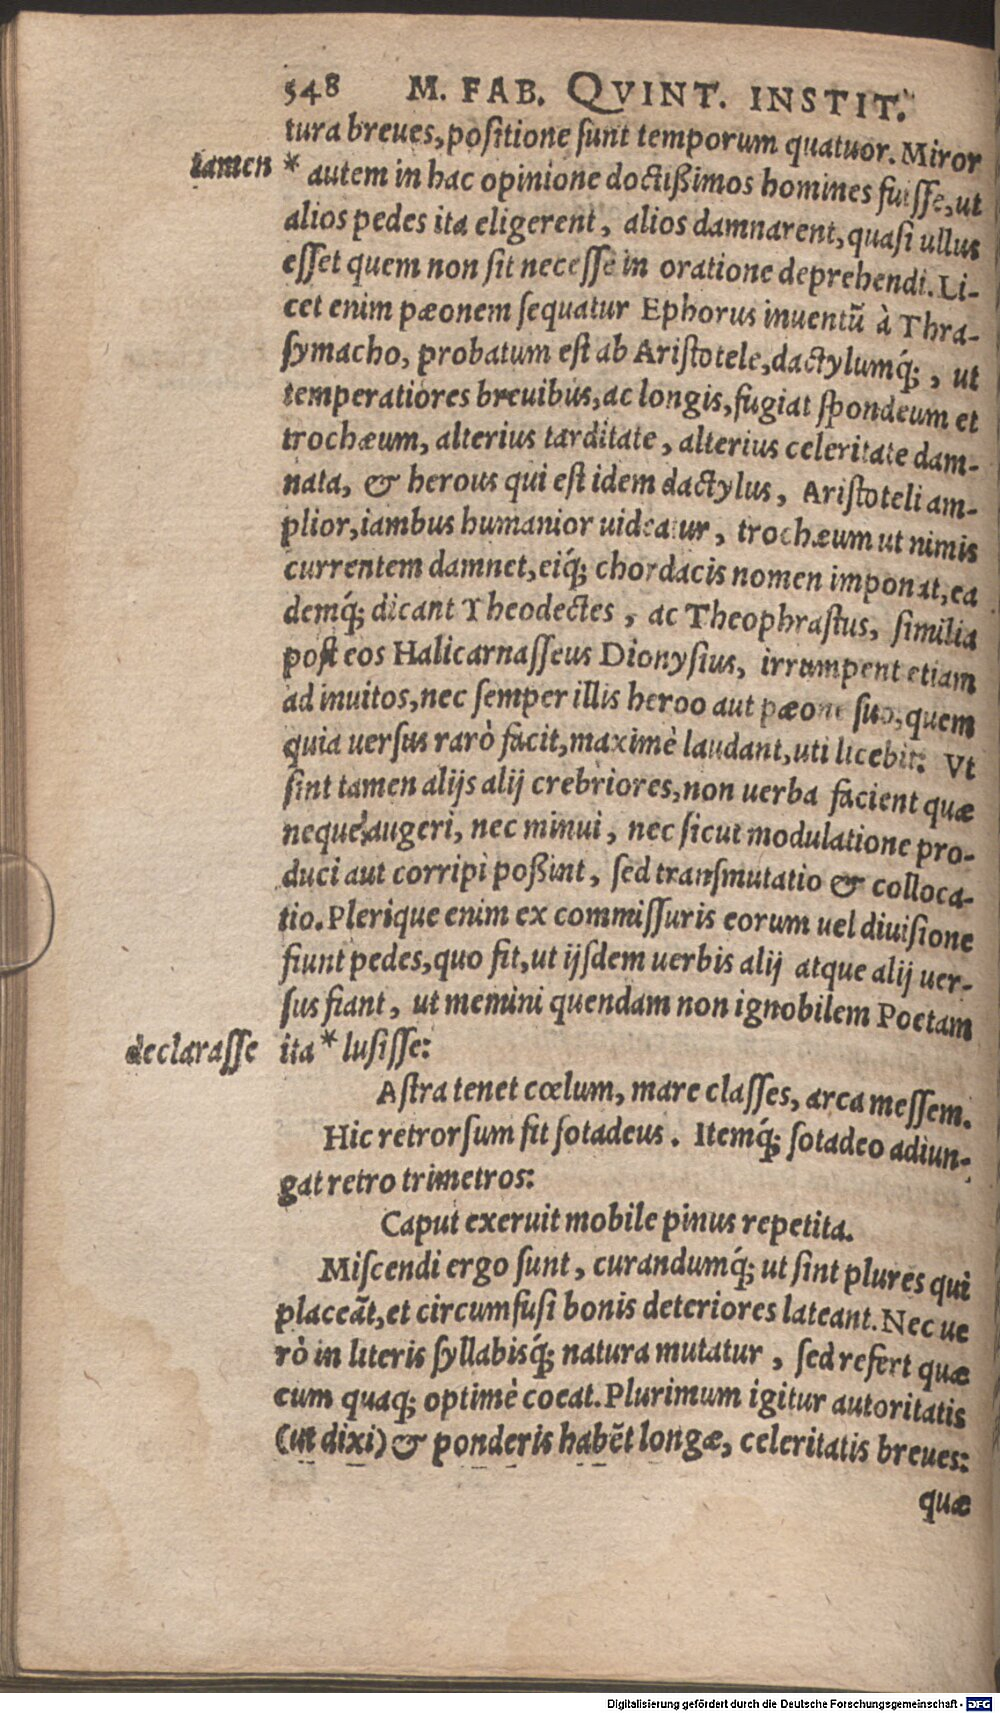 548 M. FAB. QVINT. INSTIT.
tura breues, positione sunt temporum quatuor. Miror
tamen * autem in hac opinione doctißimos homines fuisse, ut
alios pedes ita eligerent, alios damnarent, quasi ullus
esset quem non sit necesse in oratione deprehendi. Li-
cet enim pæonem sequatur Ephorus inuentũ à Thra-
symacho, probatum est ab Aristotele, dactylumq́;, ut
temperatiores breuibus, ac longis, fugiat spondeum et
trochæum, alterius tarditate, alterius celeritate dam-
nata, & herous qui est idem dactylus, Aristoteli am-
plior, iambus humanior uideatur, trochæum ut nimis
currentem damnet, eiq́; chordacis nomen imponat, ea
demq́; dicant Theodectes, ac Theophrastus, similia
post eos Halicarnasseus Dionysius, irrumpent etiam
ad inuitos, nec semper illis heroo aut pæone suo, quem
quia uersus rarò facit, maximè laudant, uti licebit: Vt
sint tamen alijs alij crebriores, non uerba facient quæ
neque augeri, nec minui, nec sicut modulatione pro-
duci aut corripi poßint, sed transmutatio & colloca-
tio. Plerique enim ex commissuris eorum uel diuisione
fiunt pedes, quo fit, ut ijsdem uerbis alij atque alij uer-
sus fiant, ut memini quendam non ignobilem Poetam
declarasse ita * lusisse:
Astra tenet cœlum, mare classes, arca messem.
Hic retrorsum fit sotadeus. Itemq́; sotadeo adiun-
gat retro trimetros:
Caput exeruit mobile pinus repetita.
Miscendi ergo sunt, curandumq́; ut sint plures qui
placeãt, et circumfusi bonis deteriores lateant. Nec ue
rò in literis syllabisq́; natura mutatur, sed refert quæ
cum quaq; optimè coeat. Plurimum igitur autoritatis
(ut dixi) & ponderis habẽt longæ, celeritatis breues:
quæ
Digitalisierung gefördert durch die Deutsche Forschungsgemeinschaft - DFG